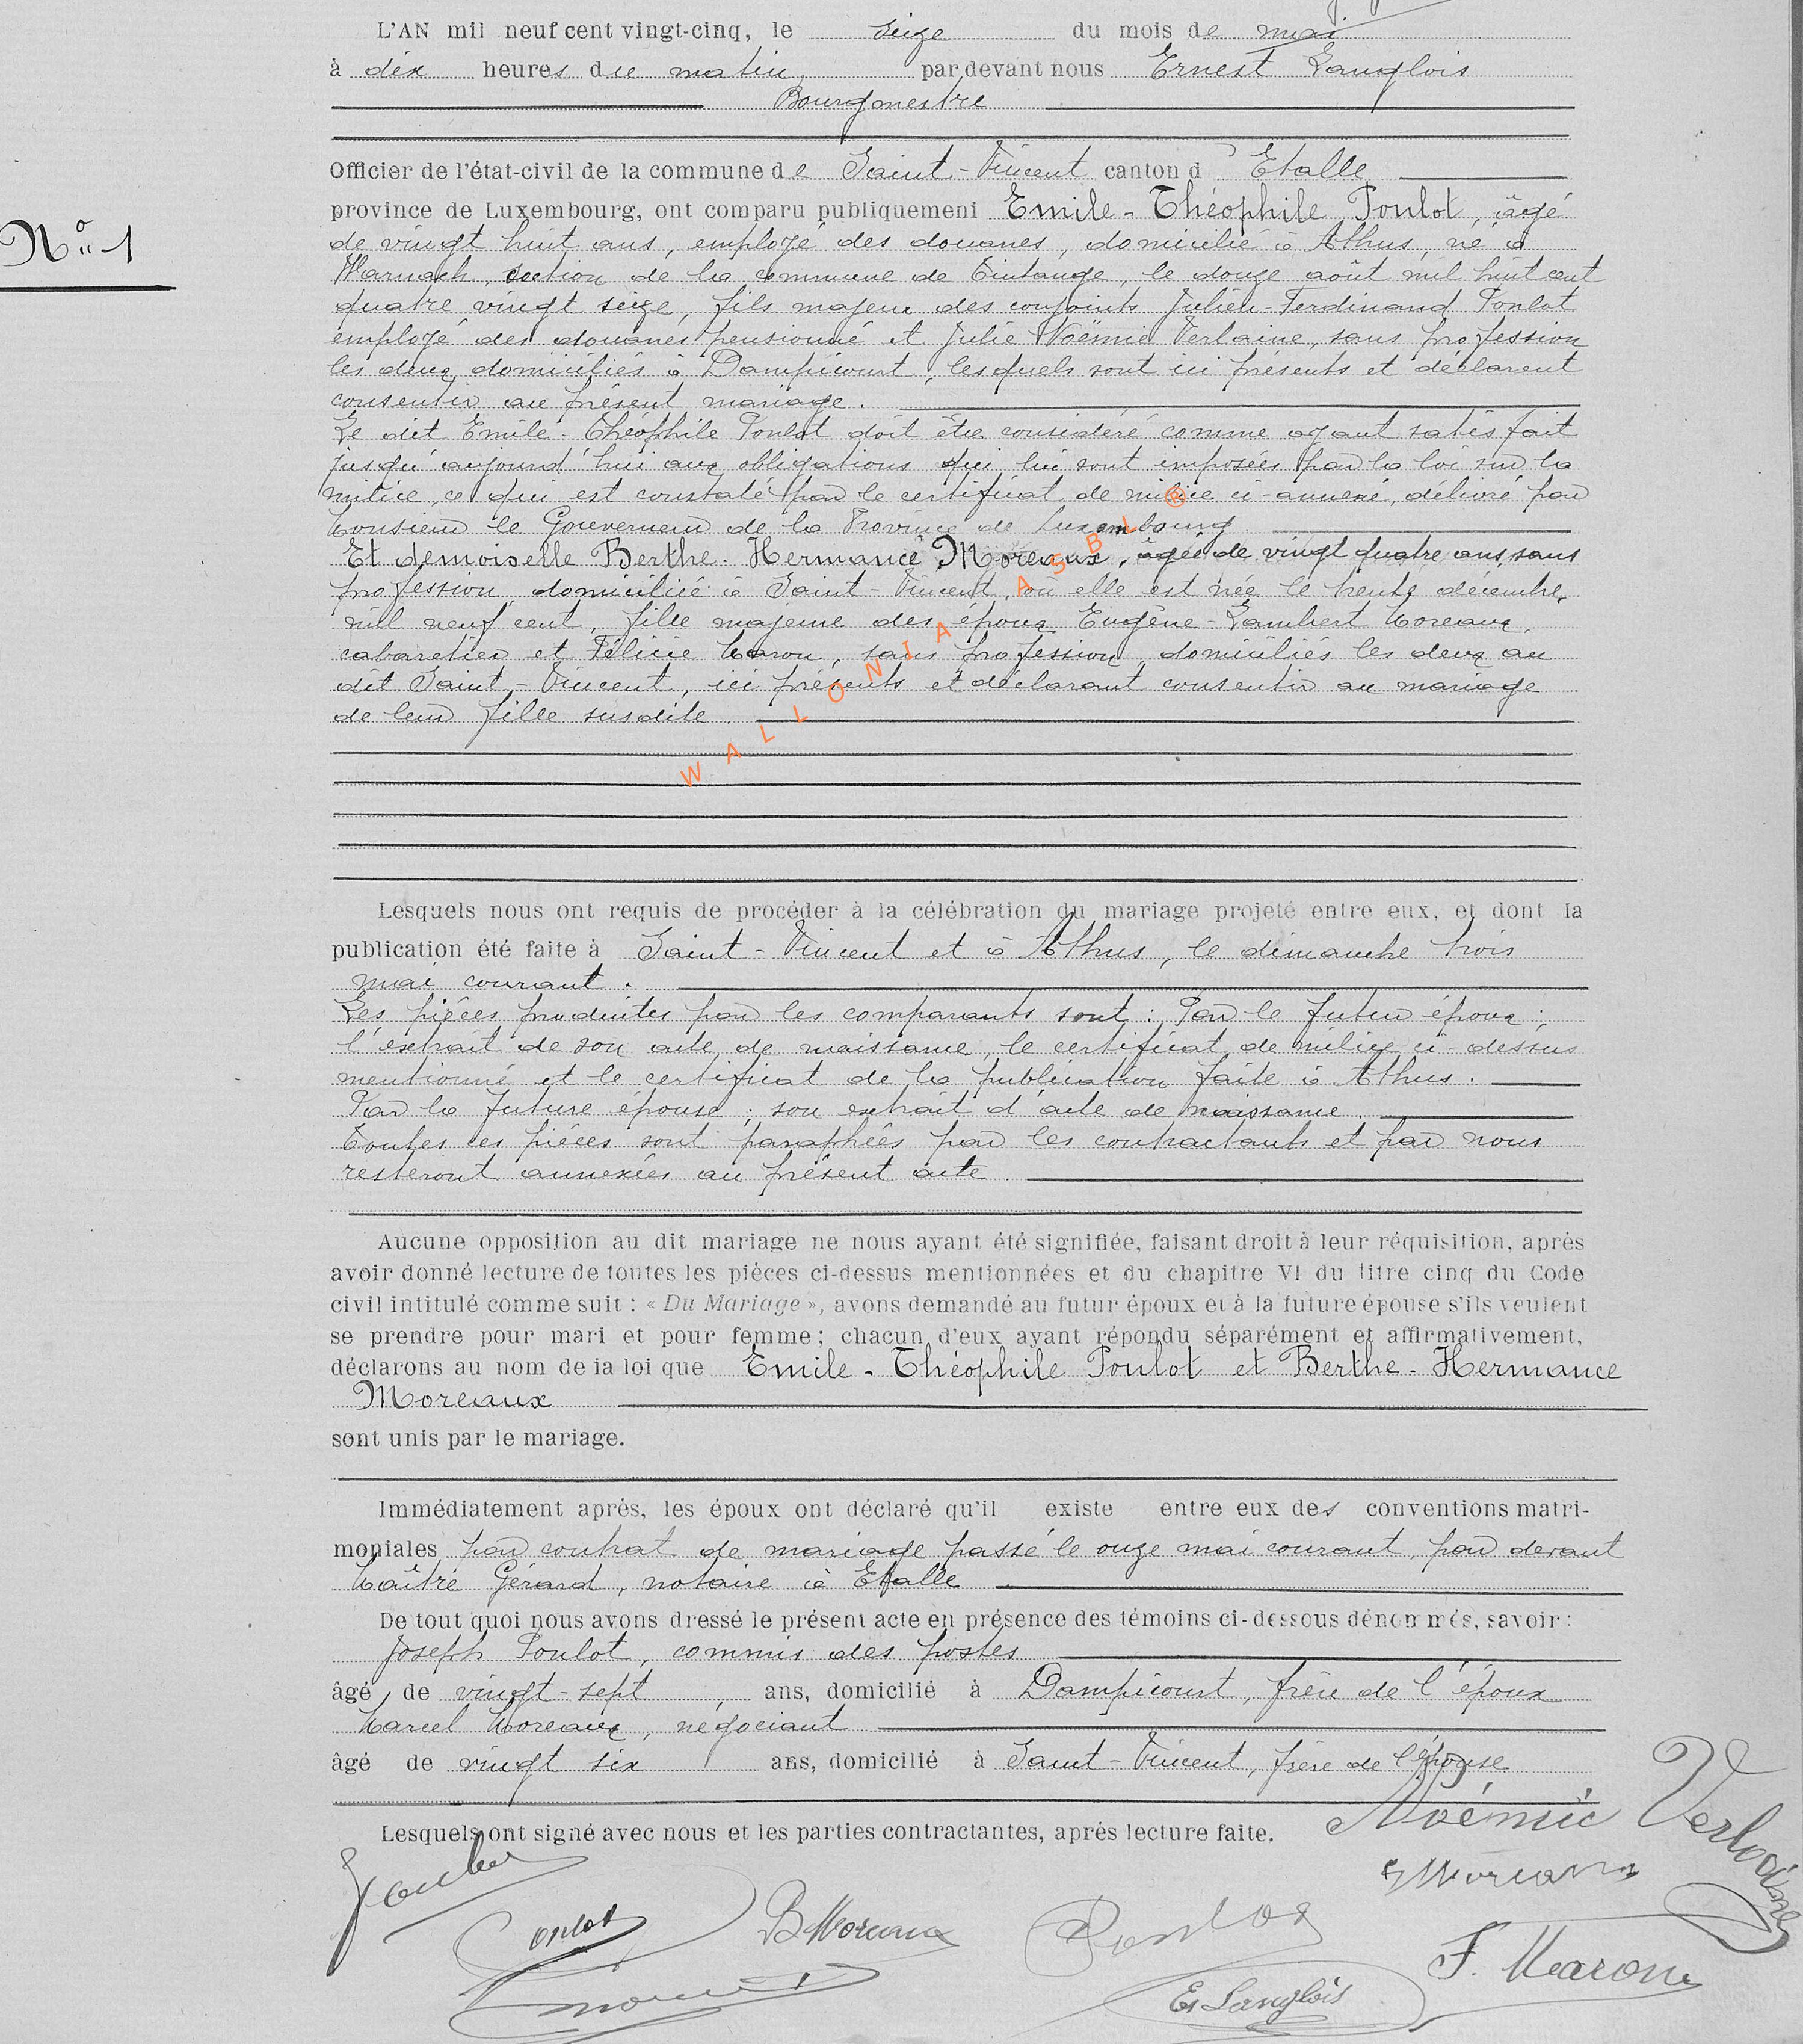 L'AN mil neuf cent vingt-cinq, le seize du mois de mai
à dix heures du matin, par devant nous Ernest Langlois
Bourgmestre
Officier de l'état-civil de la commune de Saint-Vincent canton d'Etalle
province de Luxembourg, ont comparu publiquement Emile-Théophile Poulot, âgé
Nº 1
de vingt huit ans, employé des douanes, domicilié à Athus, né à
Warnach, section de la commune de Tintange, le douze août mil huit cent
quatre vingt seize, fils majeur des conjoints Julien-Ferdinand Poulot
employé des douanes pensionné et Julie Noëmie Verlaine, sans profession
les deux domiciliés à Dampicourt, lesquels sont ici présents et déclarent
consentir au présent mariage.
Le dit Emile-Théophile Poulot doit être considéré comme ayant satisfait
jusqu'aujourd'hui aux obligations qui lui sont imposées par la loi sur la
milice, ce qui est constaté par le certificat de milice ci-annexé, délivré par
Monsieur le Gouverneur de la Province de Luxembourg.
Et demoiselle Berthe-Hermance Moreaux, âgée de vingt quatre ans, sans
profession, domiciliée à Saint-Vincent, où elle est née le trente décembre
mil neuf cent, fille majeure des époux Eugène-Lambert Moreaux,
cabaretier et Félicie Maron, sans profession, domiciliés les deux au
dit Saint-Vincent, ici présents et déclarant consentir au mariage
de leur fille susdite.
WALLONIA ASBL ®
Lesquels nous ont requis de procéder à la célébration du mariage projeté entre eux, et dont la
publication été faite à Saint-Vincent et à Athus, le dimanche trois
mai courant.
Les pièces produites par les comparants sont: Par le futur époux:
l'extrait de son acte de naissance, le certificat de milice ci-dessus
mentionné et le certificat de la publication faite à Athus.
Par la future épouse; son extrait d'acte de naissance.
Toutes ces pièces sont paraphées par les contractants et par nous
resteront annexées au présent acte.
Aucune opposition au dit mariage ne nous ayant été signifiée, faisant droit à leur réquisition, après
avoir donné lecture de toutes les pièces ci-dessus mentionnées et du chapitre VI du titre cinq du Code
civil intitulé comme suit : « Du Mariage », avons demandé au futur époux et à la future épouse s'ils veulent
se prendre pour mari et pour femme; chacun d'eux ayant répondu séparément et affirmativement,
déclarons au nom de la loi que Emile-Théophile Poulot et Berthe-Hermance
Moreaux
sont unis par le mariage.
Immédiatement après, les époux ont déclaré qu'il existe entre eux des conventions matri-
moniales par contrat de mariage passé le onze mai courant, par devant
Maître Gérard, notaire à Etalle
De tout quoi nous avons dressé le présent acte en présence des témoins ci-dessous dénommés, savoir :
Joseph Poulot, commis des postes
âgé de vingt-sept, ans, domicilié à Dampicourt, frère de l'époux
Marcel Moreaux, négociant
âgé de vingt six ans, domicilié à Saint-Vincent, frère de l'épouse
Lesquels ont signé avec nous et les parties contractantes, après lecture faite.
Noémie Verlaine
Poulot
B Moreaux
Poulot
F. Maron
E. Langlois